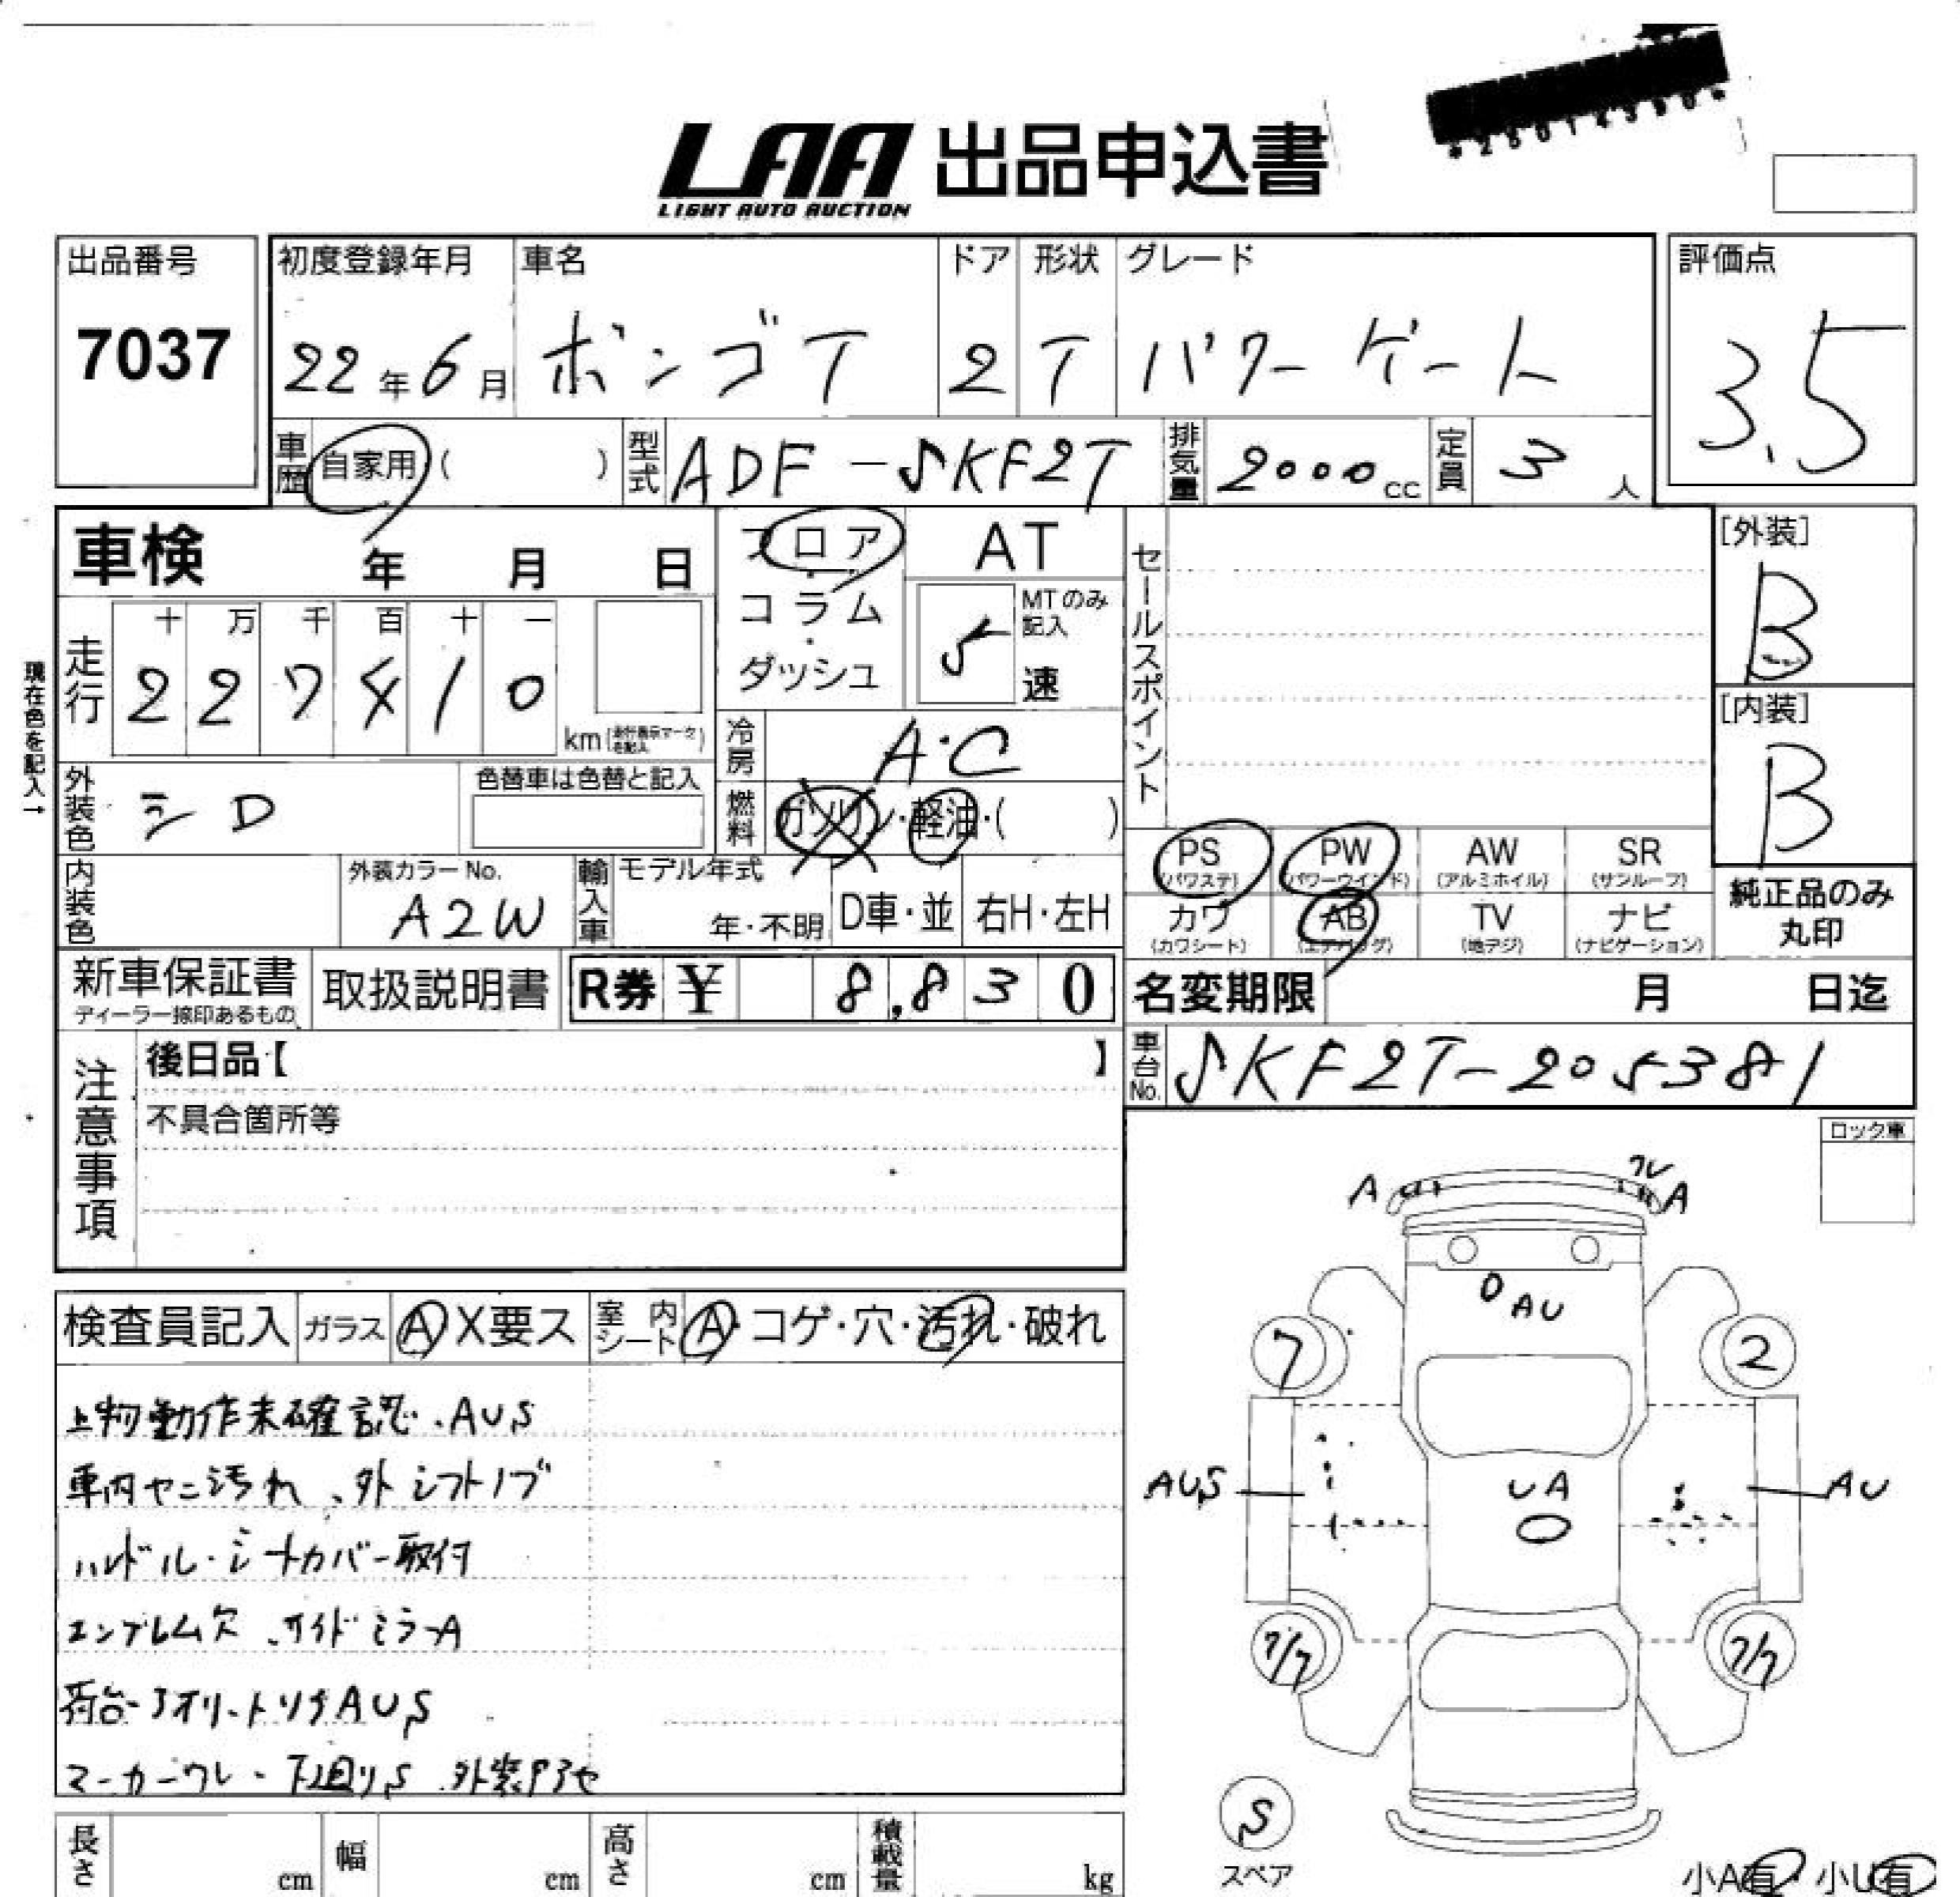 *25014390*
LAA 出品申込書
LIGHT AUTO AUCTION
出品番号 初度登録年月 車名 ドア 形状 グレード 評価点
7037 22年6月 ボンゴT 2 T パワーゲート 3.5
車歴 自家用 ( ) 型式 ADF-SKF2T 排気量 2000cc 定員 3人
車検 年 月 日 フロア AT セールスポイント [外装]
・コラム・ MTのみ記入 B
走行 十 万 千 百 十 一
227410 km ダッシュ 5速 [内装]
現在色を記入→
冷房 A・C B
外装色 シロ 色替車は色替と記入 燃料 ガソリン・軽油・( )
PS PW AW SR
(パワステ) (パワーウインド) (アルミホイル) (サンルーフ)
内装色 外装カラーNo. 輸入車 モデル年式 純正品のみ
A2W 年・不明 D車・並 右H・左H カワ AB TV ナビ 丸印
(カワシート) (エアバッグ) (地デジ) (ナビゲーション)
新車保証書 取扱説明書 R券 ¥ 8,830 名変期限 月 日迄
ディーラー捺印あるもの
注意事項 後日品【 】 車台No. SKF2T-205381
不具合箇所等
ロック車
A ワレ A
D AU
検査員記入 ガラス A X要ス 室内シート A・コゲ・穴・汚れ・破れ
7 2
上物動作未確認、AUS
車内ヤニ汚れ、外シフトノブ
AUS UA AU
ハンドル・シートカバー取付
エンブレム欠、サイドミラーA
7/7 7/7
荷台・アオリ・トリイAUS
マーカーワレ・下廻りS
S
長さ cm 幅 cm 高さ cm 積載量 kg
スペア
小A有・小U有